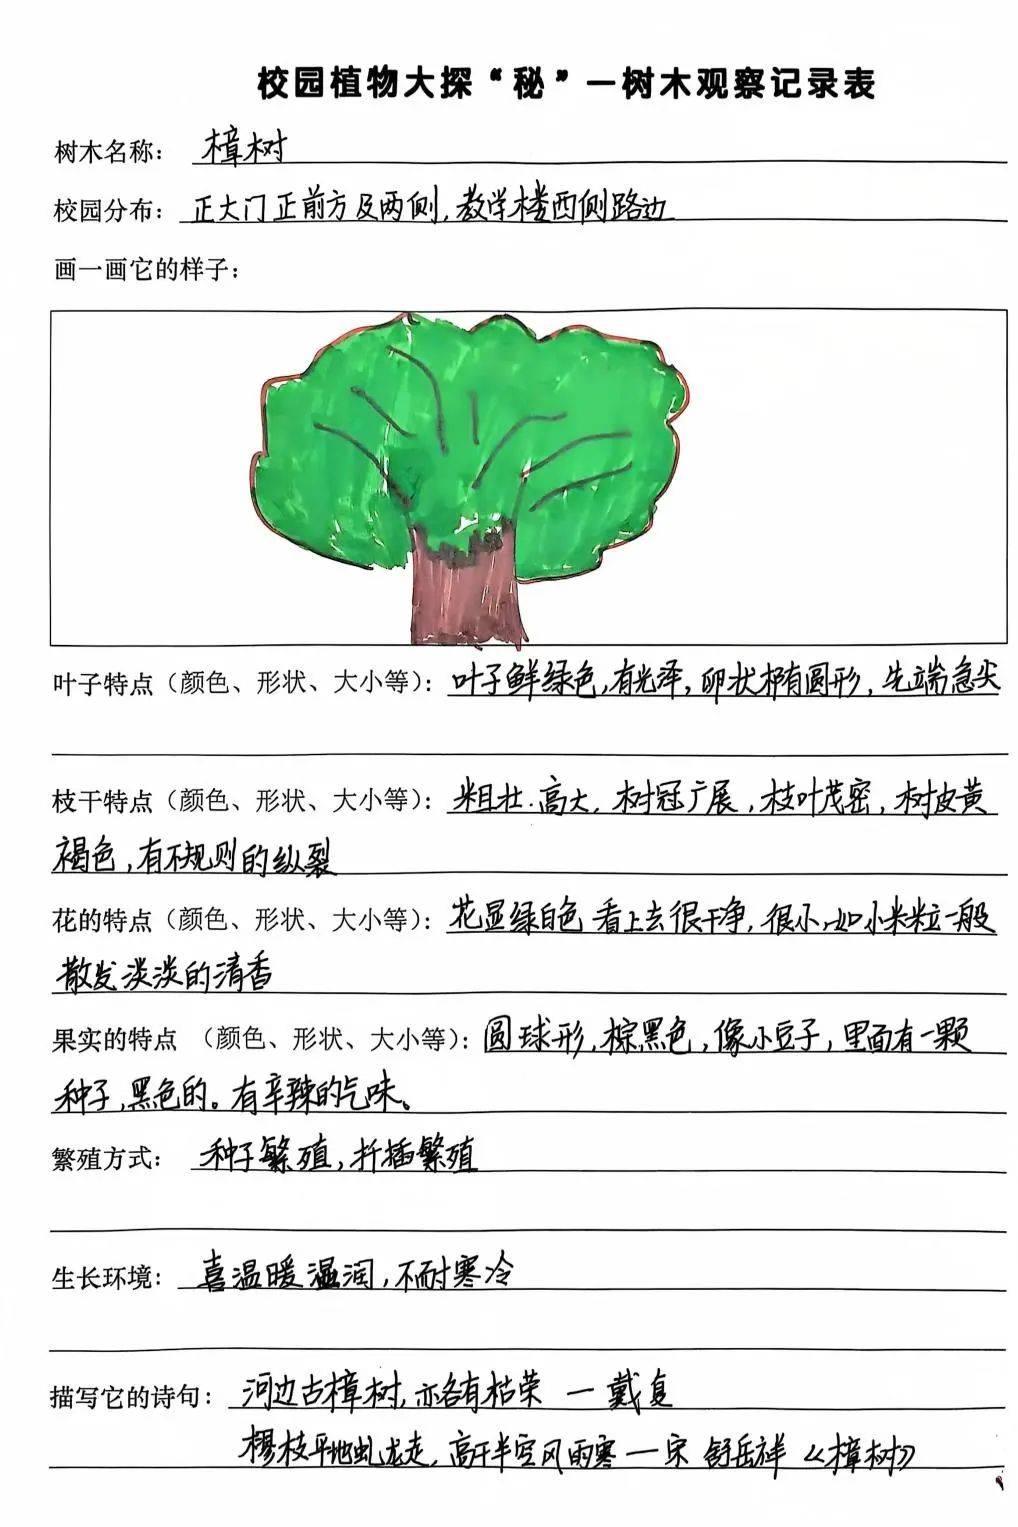 校园植物大探“秘”—树木观察记录表
树木名称： 樟树
校园分布： 正大门正前方及两侧，教学楼西侧路边
画一画它的样子：
叶子特点（颜色、形状、大小等）：叶子鲜绿色，有光泽，卵状椭圆形，先端急尖
枝干特点（颜色、形状、大小等）：粗壮．高大，树冠广展，枝叶茂密，树皮黄
褐色，有不规则的纵裂
花的特点（颜色、形状、大小等）：花显绿白色 看上去很干净，很小，如小米粒一般
散发淡淡的清香
果实的特点 （颜色、形状、大小等）：圆球形，棕黑色，像小豆子，里面有一颗
种子，黑色的。有辛辣的气味。
繁殖方式： 种子繁殖，扦插繁殖
生长环境： 喜温暖湿润，不耐寒冷
描写它的诗句： 河边古樟树，亦各有枯荣 — 戴复
樛枝平地虬龙走，高干半空风雨寒 — 宋 舒岳祥《樟树》